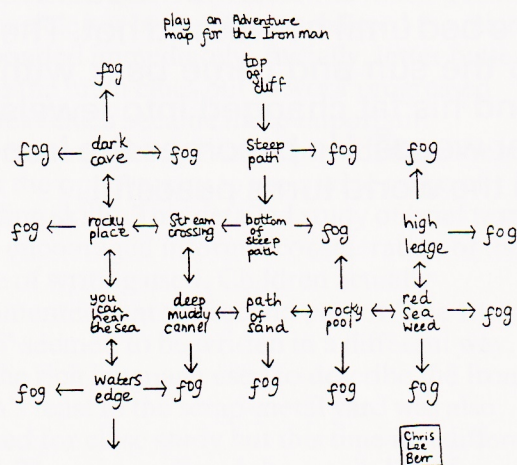 play an Adventure
map for the Iron man
fog
top
of
cliff
fog
dark
cave
fog
Steep
path
fog
fog
fog
rocky
place
Stream
crossing
bottom
of
steep
path
fog
high
ledge
fog
you
can
hear
the sea
deep
muddy
cannel
path
of
sand
rocky
pool
red
sea
weed
fog
fog
waters
edge
fog
fog
fog
fog
Chris
Lee
Berr